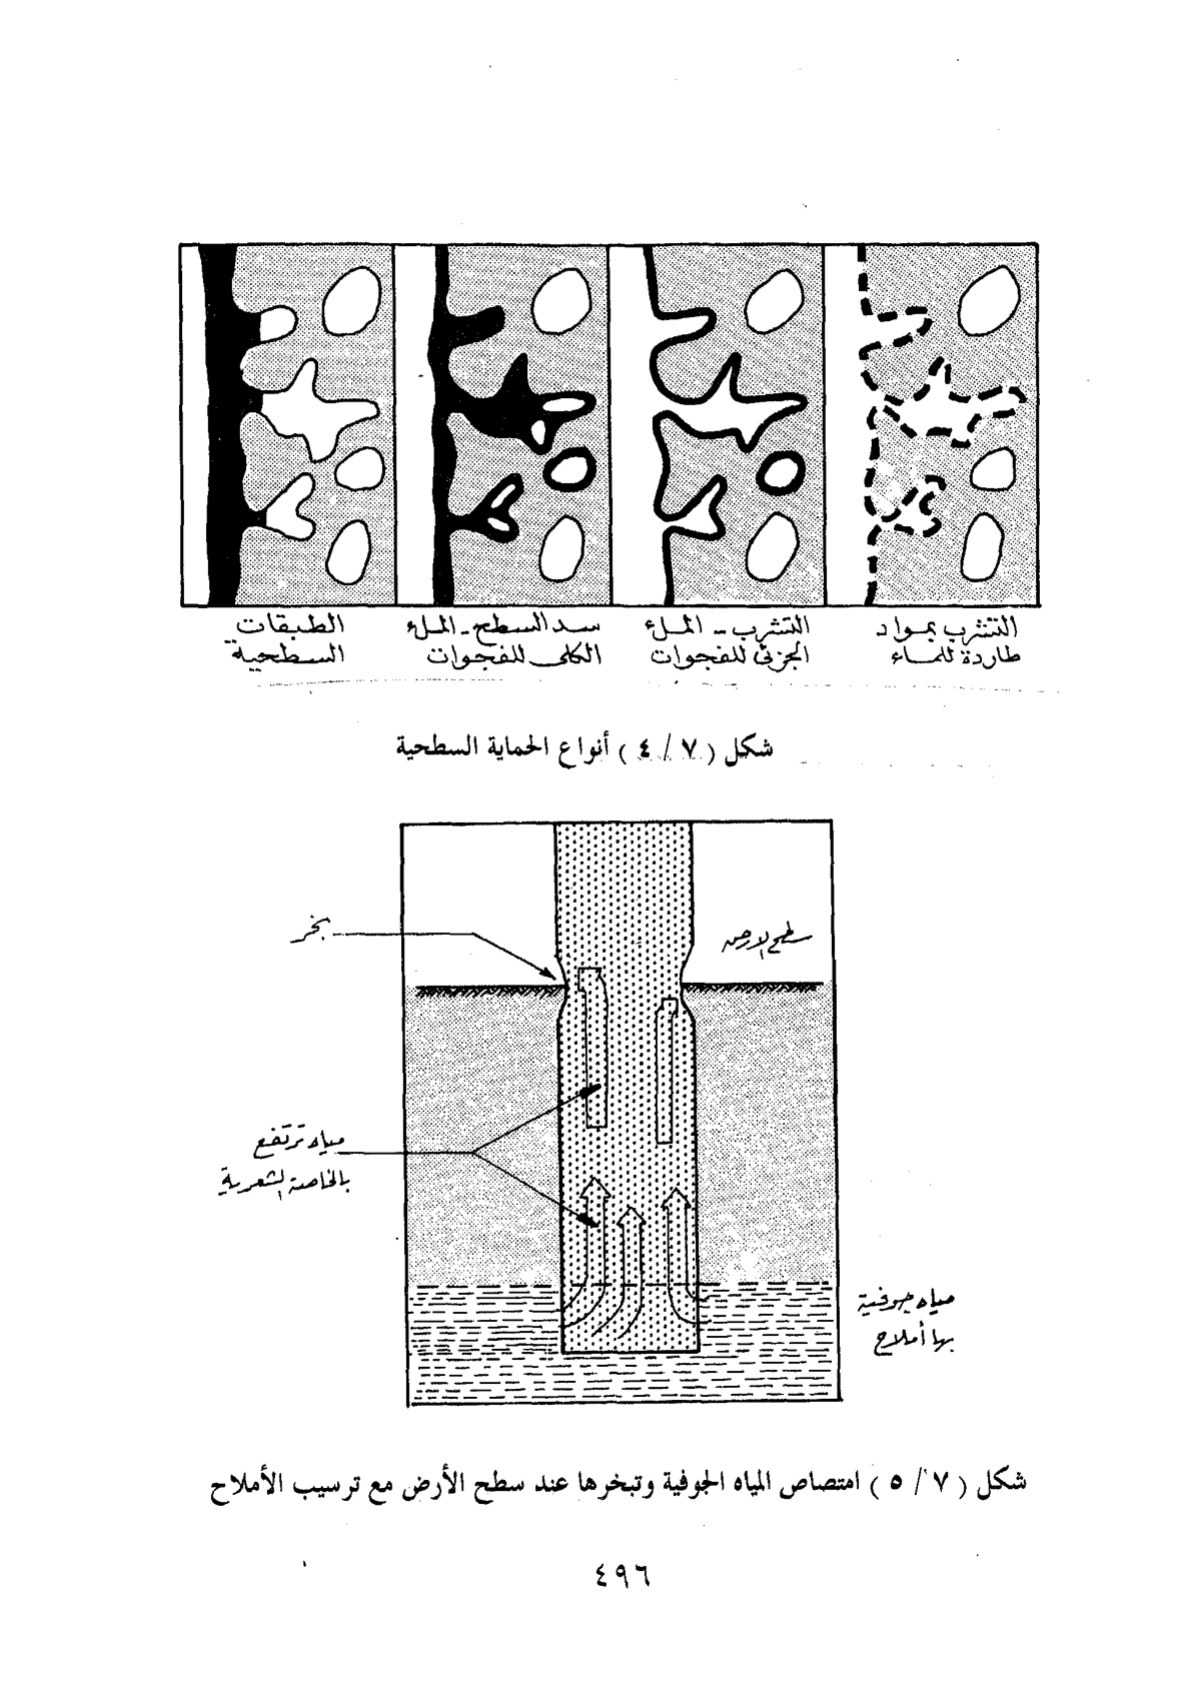 التشرب بمواد
طاردة للماء
التشرب - الملء
الجزئى للفجوات
سد السطح - الملء
الكلى للفجوات
الطبقات
السطحية
شكل ( ٧ / ٤ ) أنواع الحماية السطحية
سطح الارض
بخر
مياه ترتفع
بالخاصة الشعرية
مياه جوفية
بها أملاح
شكل ( ٧ / ٥ ) امتصاص المياه الجوفية وتبخرها عند سطح الأرض مع ترسيب الأملاح
٤٩٦